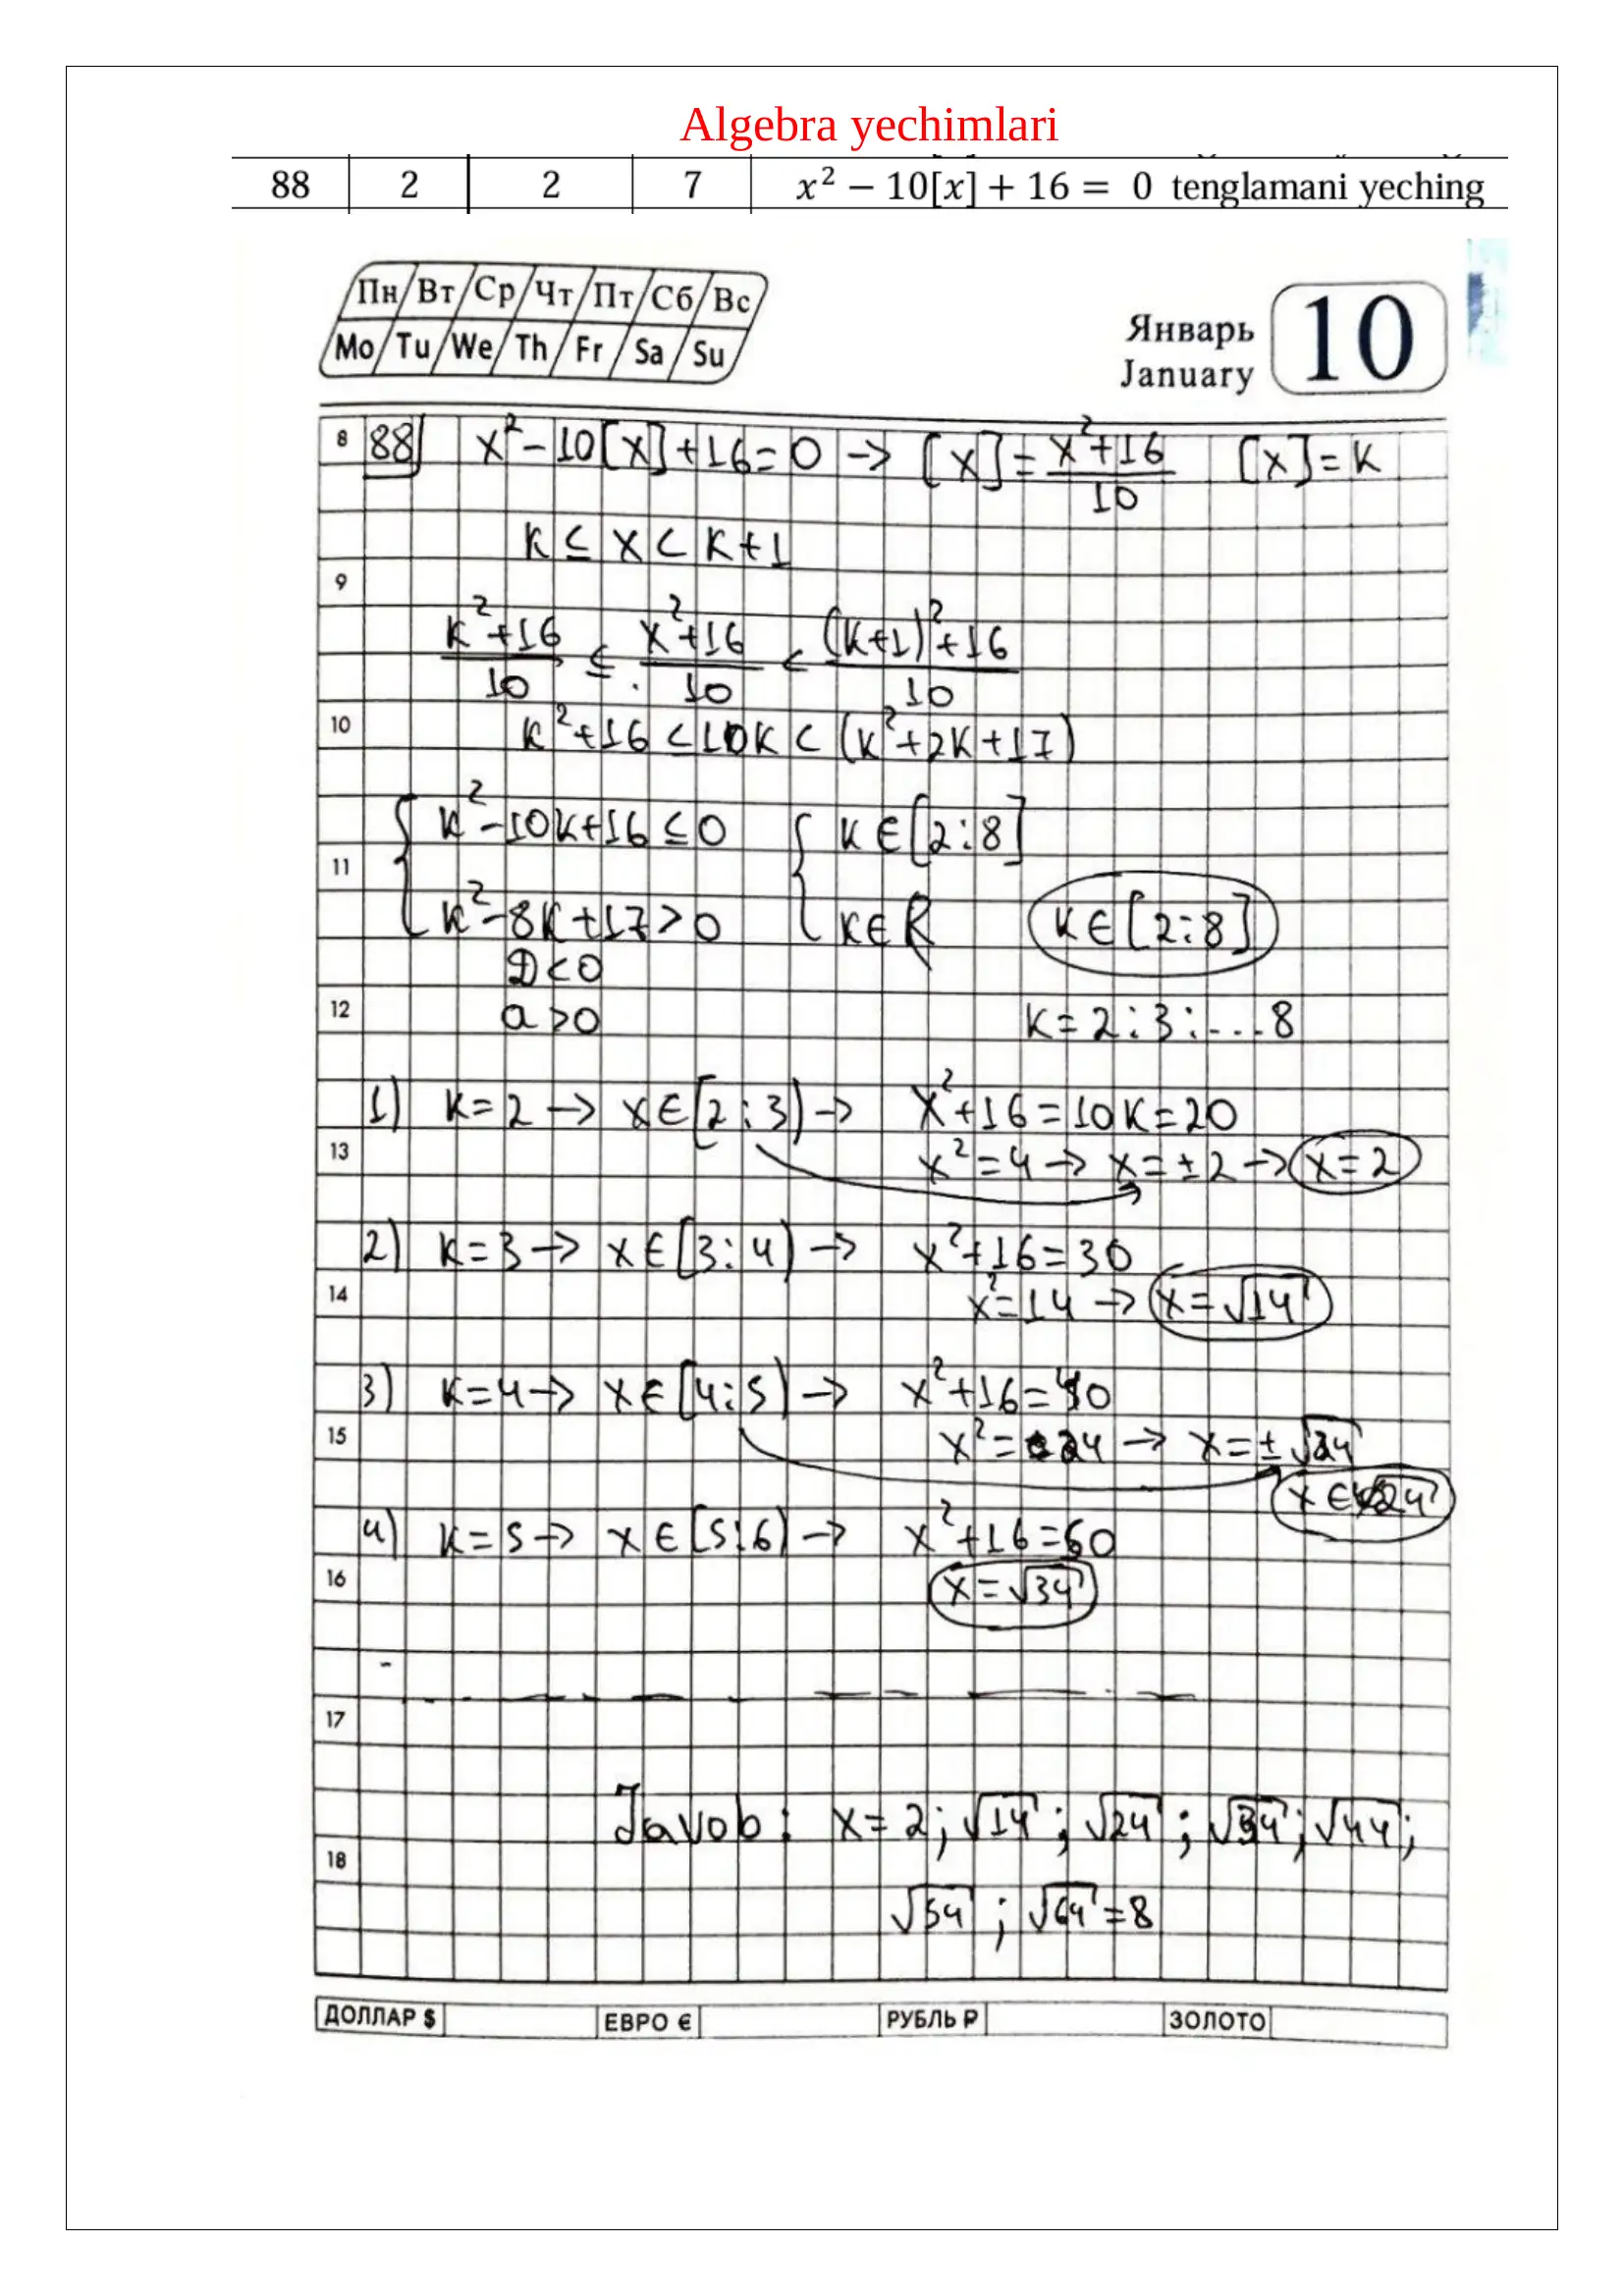 Algebra yechimlari
88 2 2 7 x² − 10[x] + 16 = 0 tenglamani yeching
Пн Вт Ср Чт Пт Сб Вс
Mo Tu We Th Fr Sa Su
Январь
January
10
8 88 x²-10[x]+16=0 -> [x]=(x²+16)/10 [x]=k
k≤x<k+1
9
(k²+16)/10 ≤ (x²+16)/10 < ((k+1)²+16)/10
10 k²+16≤10k<(k²+2k+17)
k²-10k+16≤0 k∈[2:8]
11
k²-8k+17>0 k∈R k∈[2:8]
D<0
12 a>0 k=2:3:...8
1) k=2 -> x∈[2:3) -> x²+16=10k=20
13 x²=4 -> x=±2 -> x=2
2) k=3 -> x∈[3:4) -> x²+16=30
14 x²=14 -> x=√14
3) k=4 -> x∈[4:5) -> x²+16=40
15 x²=24 -> x=±√24
x∈√24
4) k=5 -> x∈[5:6) -> x²+16=50
16 x=√34
17
Javob: x=2; √14; √24; √34; √44;
18
√54; √64=8
ДОЛЛАР $ ЕВРО € РУБЛЬ ₽ ЗОЛОТО